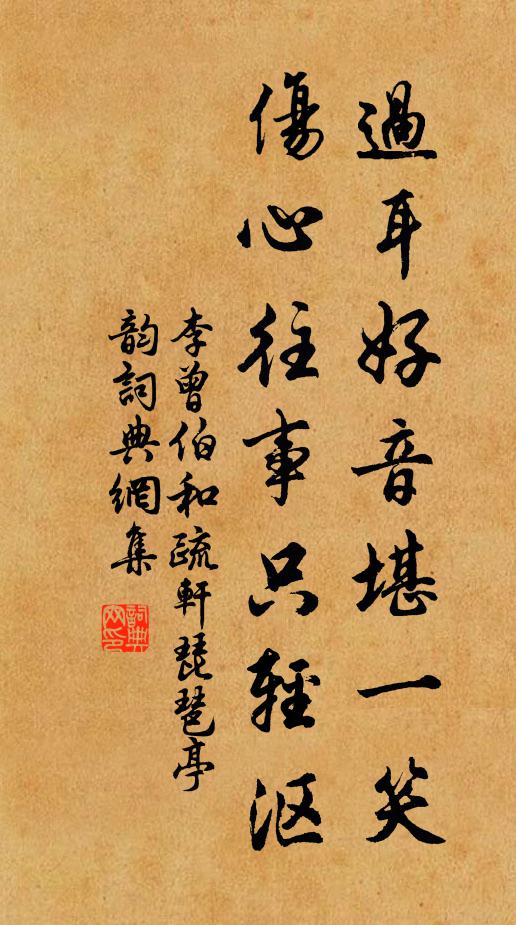 過耳好音堪一笑
傷心往事只輕沤
李曾伯和疏軒琵琶亭
韵詞典網集
詞典網印